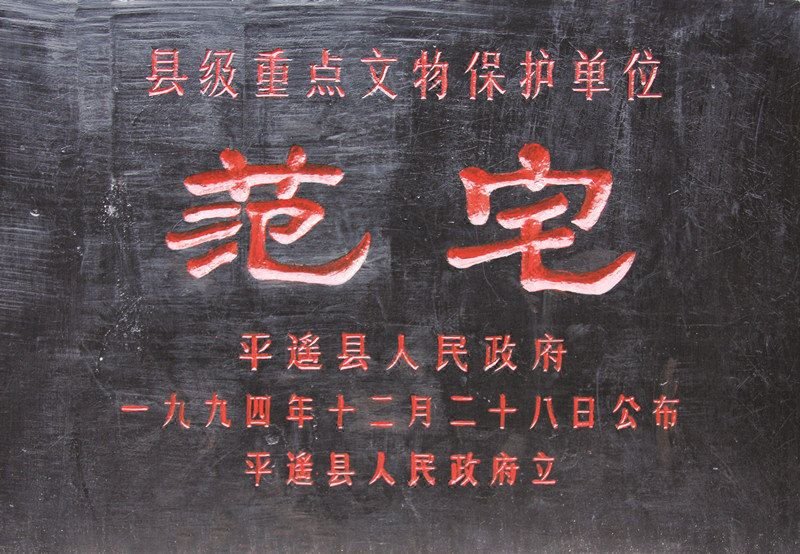 县级重点文物保护单位
范宅
平遥县人民政府
一九九四年十二月二十八日公布
平遥县人民政府立